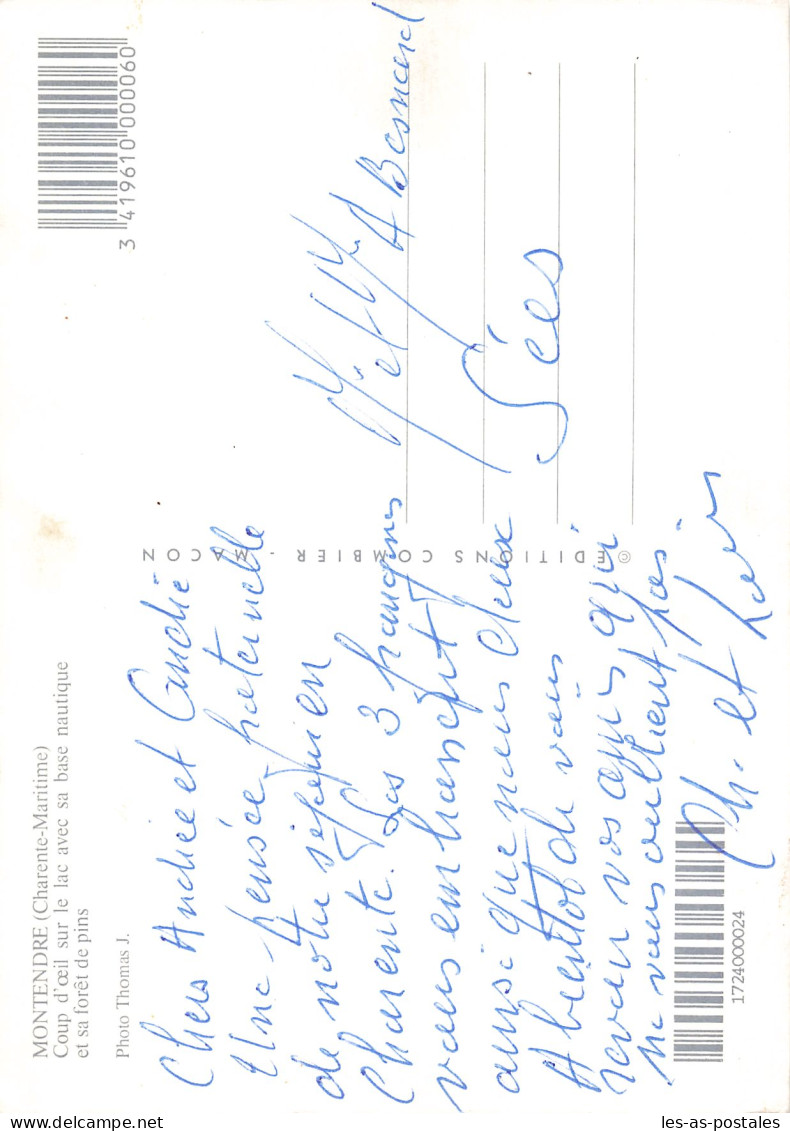 MONTENDRE (Charente-Maritime)
Coup d'œil sur le lac avec sa base nautique
et sa forêt de pins
Photo Thomas J.
3 419610 000060
© EDITIONS COMBIER - MACON
Chers Andrée et
Une pensée fraternelle
de notre séjour en
Charente. Les 3
vous embrassent
ainsi que nous deux
A bientôt de vous
revoir vos amis qui
ne vous oublient pas
Ch. et
et
A Besnard
Sées
1724000024
les-as-postales